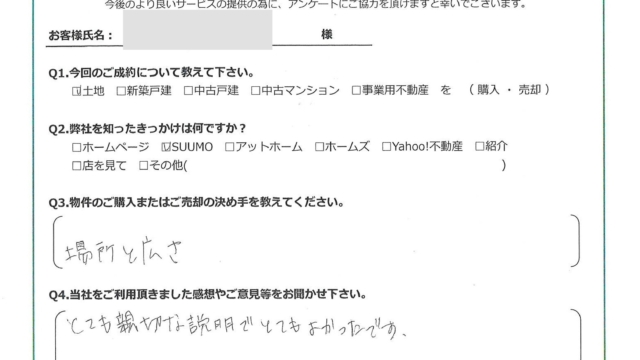 今後のより良いサービスの提供の為に、アンケートにご協力を頂けますと幸いでございます。
お客様氏名： 様
Q1.今回のご成約について教えて下さい。
☑土地 □新築戸建 □中古戸建 □中古マンション □事業用不動産 を （ 購入 ・ 売却 ）
Q2.弊社を知ったきっかけは何ですか？
□ホームページ ☑SUUMO □アットホーム □ホームズ □Yahoo!不動産 □紹介
□店を見て □その他( )
Q3.物件のご購入またはご売却の決め手を教えてください。
場所と広さ
Q4.当社をご利用頂きました感想やご意見等をお聞かせ下さい。
とても親切な説明でとてもよかったです。